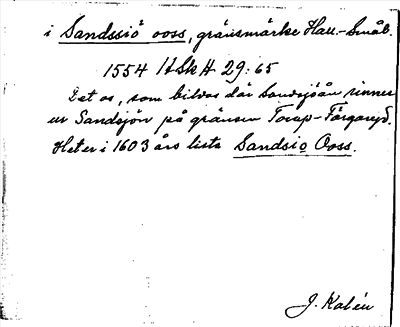 i Sandssiö ooss, gränsmärke Hall.-Smål.
1554 HSkH 29:65
Det os, som bildas där Sandsjöån rinner
ur Sandsjön på gränsen Torup-Färgaryd.
Heter i 1603 års lista Sandsio Ooss.
J. Kalén